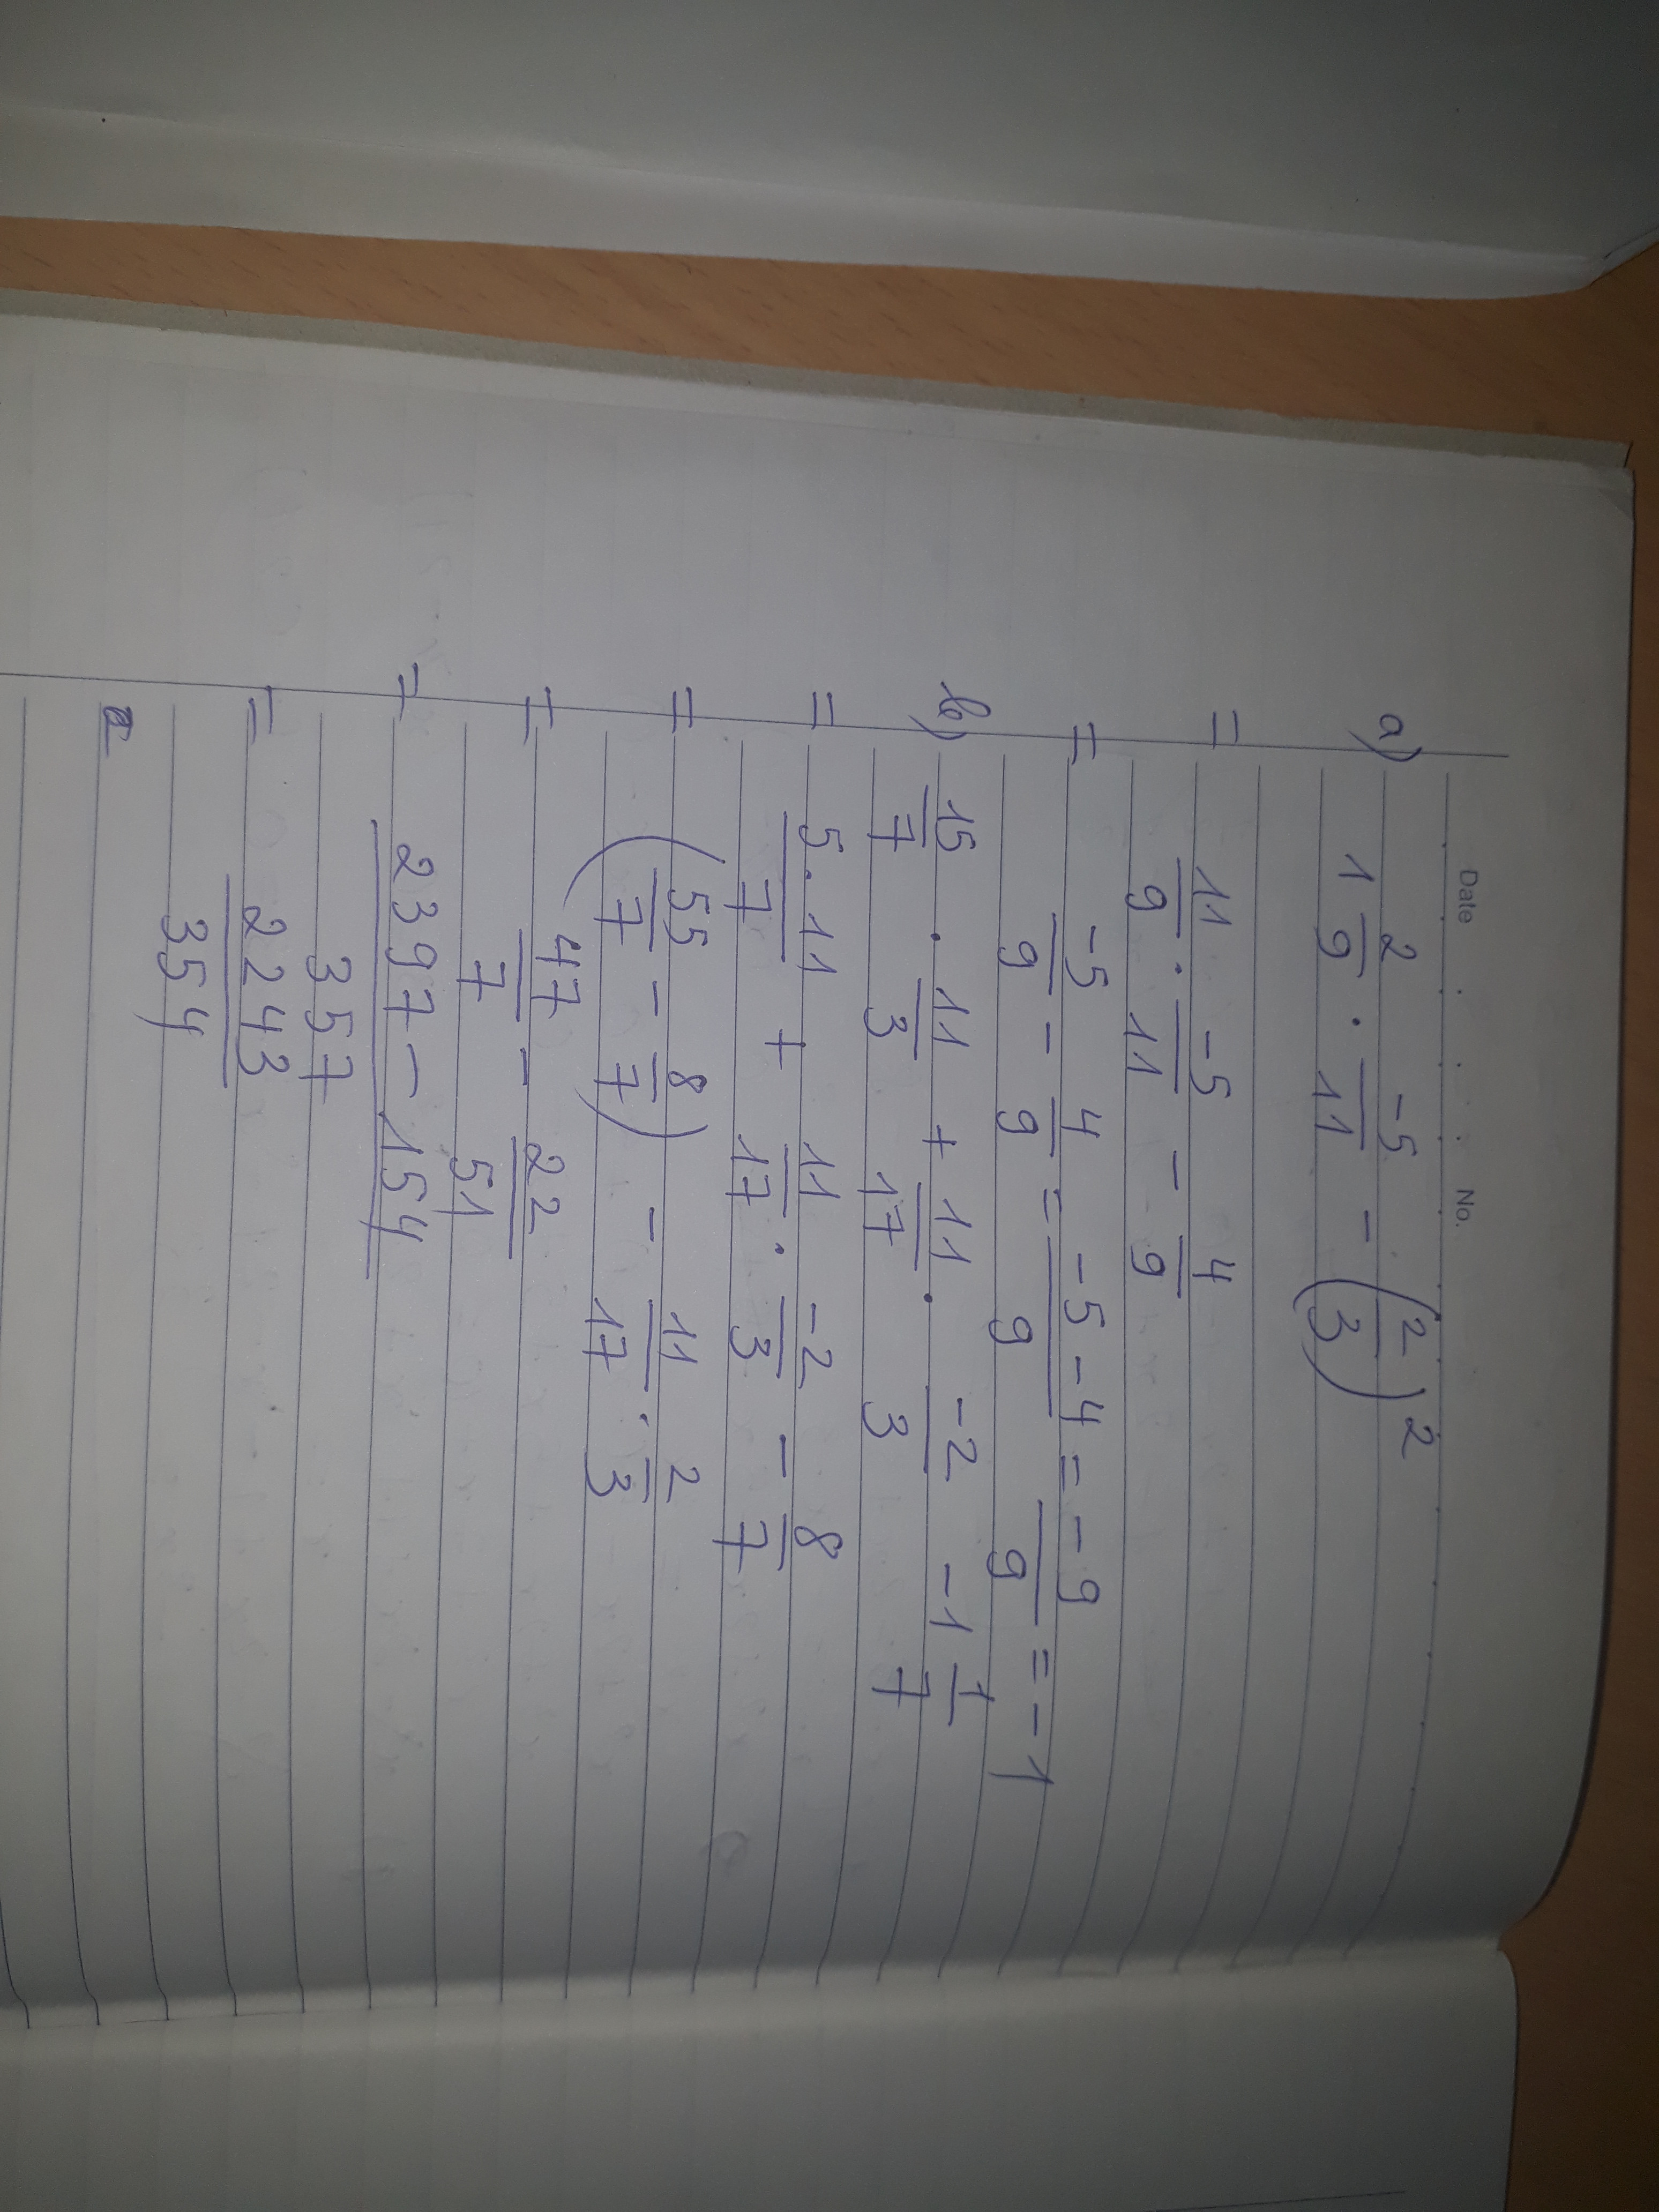 Date . . . . No.
a) 1 2/9 · -5/11 - (2/3)²
= 11/9 · -5/11 - 4/9
= -5/9 - 4/9 = -5-4/9 = -9/9 = -1
b) 15/7 · 11/3 + 11/17 · -2/3 - 1 1/7
= 5·11/7 + 11/17 · -2/3 - 8/7
= (55/7 - 8/7) - 11/17 · 2/3
= 47/7 - 22/51
= 2397-154/357
= 2243/354